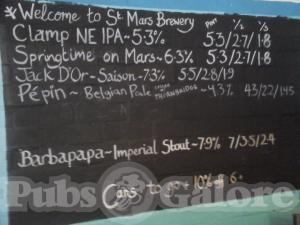 * Welcome to St Mars Brewery Pint 1/2 1/3
Clamp NE IPA ~ 5·3% 5·3/2·7/1·8
Springtime on Mars ~ 6·3% 5·3/2·7/1·8
Jack D'Or ~ Saison ~ 7·3% 5·5/2·8/1·9
Pépin ~ Belgian Pale THORNBRIDGE ~ 4.3% 4·3/2·2/1·45
Barbapapa ~ Imperial Stout ~ 7·9% 7/3·5/2·4
Cans to go 10% off 6+
Pubs Galore